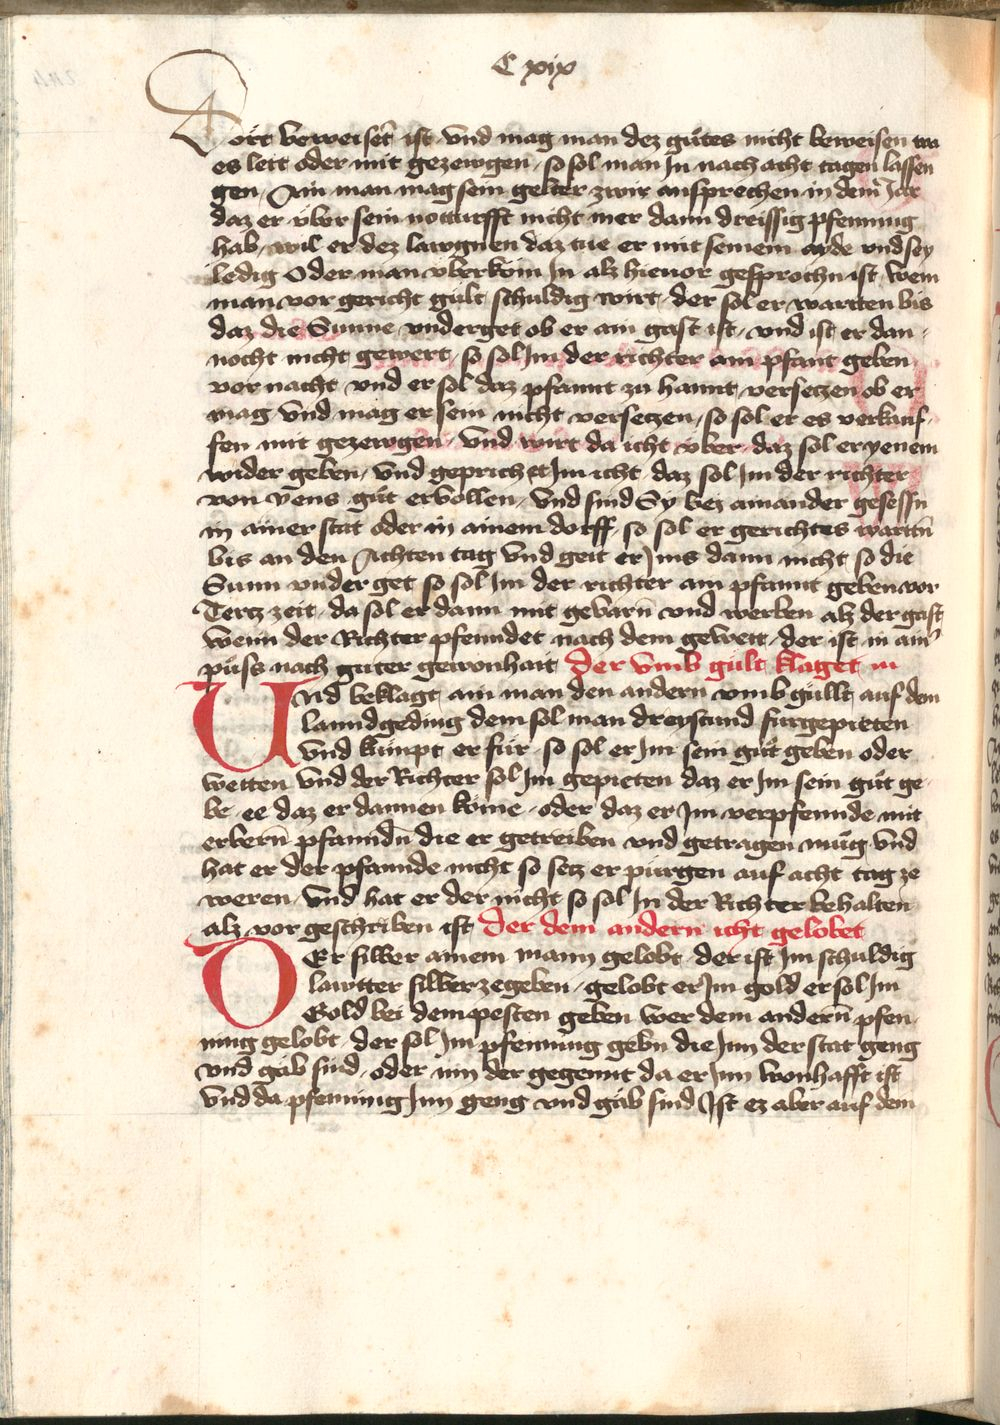 C xix
Dort beweiset ist vnd mag man dez gutes nicht beweisen wa
es leit oder mit gezewgen so sol man In nach acht tagen lassen
gen Ain man mag sein gelter zwir ansprechen in dem Jar
daz er vber sein notturfft nicht mer dann dreissig pfenning
hab wil er dez lawgnen daz tue er mit seinem ayde vnd sey
ledig Oder man vberkom In alz hieuor gesprochn ist wem
man vor gericht gult schuldig wirt der sol er wartten bis
daz die Sunne vnderget ob er ain gast ist vnd ist er dan
nocht nicht gewert so sol Im der richter ain pfant geben
vor nacht vnd er sol daz pfannt zu hannt versetzen ob er
mag vnd mag er sein nicht versetzen so sol er es verkauf
fen mit gezewgen vnd wirt da icht vber daz sol er yenem
wider geben vnd geprichet Im icht daz sol Im der richter
von yens gut ervollen vnd sind Sy bey ainander gesessn
in ainer stat oder in ainem dorff so sol er gerichtes warttn
bis an den Achten tag vnd geit er Ims dann nicht so die
Sunn vnder get so sol Im der richter ain pfannt geben vor
Tertz zeit da sol er dann mit gebarn vnd werben alz der gast
wenn der Richter pfenndet nach dem gewett der ist in ainr
puss nach guter gewonhait Der vmb gult klaget in
Und beklagt ain man den andern vmb gullt auf dem
lanndgeding dem sol man dreystund furgepieten
vnd kumpt er fur so sol er Im sein gut geben oder
wetten vnd der Richter sol Im gepieten daz er Im sein gut ge
be ee daz er dannen kome oder daz er Im verpfennde mit
erbern pfanndn die er getreiben vnd getragen mug vnd
hat er der pfannde nicht so setz er purgen auf acht tag ze
weren vnd hat er der nicht so sol In der Richter behalten
alz vor geschriben ist Der dem andern icht gelobet
DEr silber ainem mann gelobt der ist Im schuldig
lawtter silber zegeben gelobt er Im gold er sol Im
Gold bei dem pesten geben wer dem andern pfen
ning gelobt der sol Im pfenning gebn die Inn der stat geng
vnd gab sind oder inn der gegennt da er Inn wonhafft ist
vnd da pfenning Inn geng vnd gab sind Ist ez aber auf dem